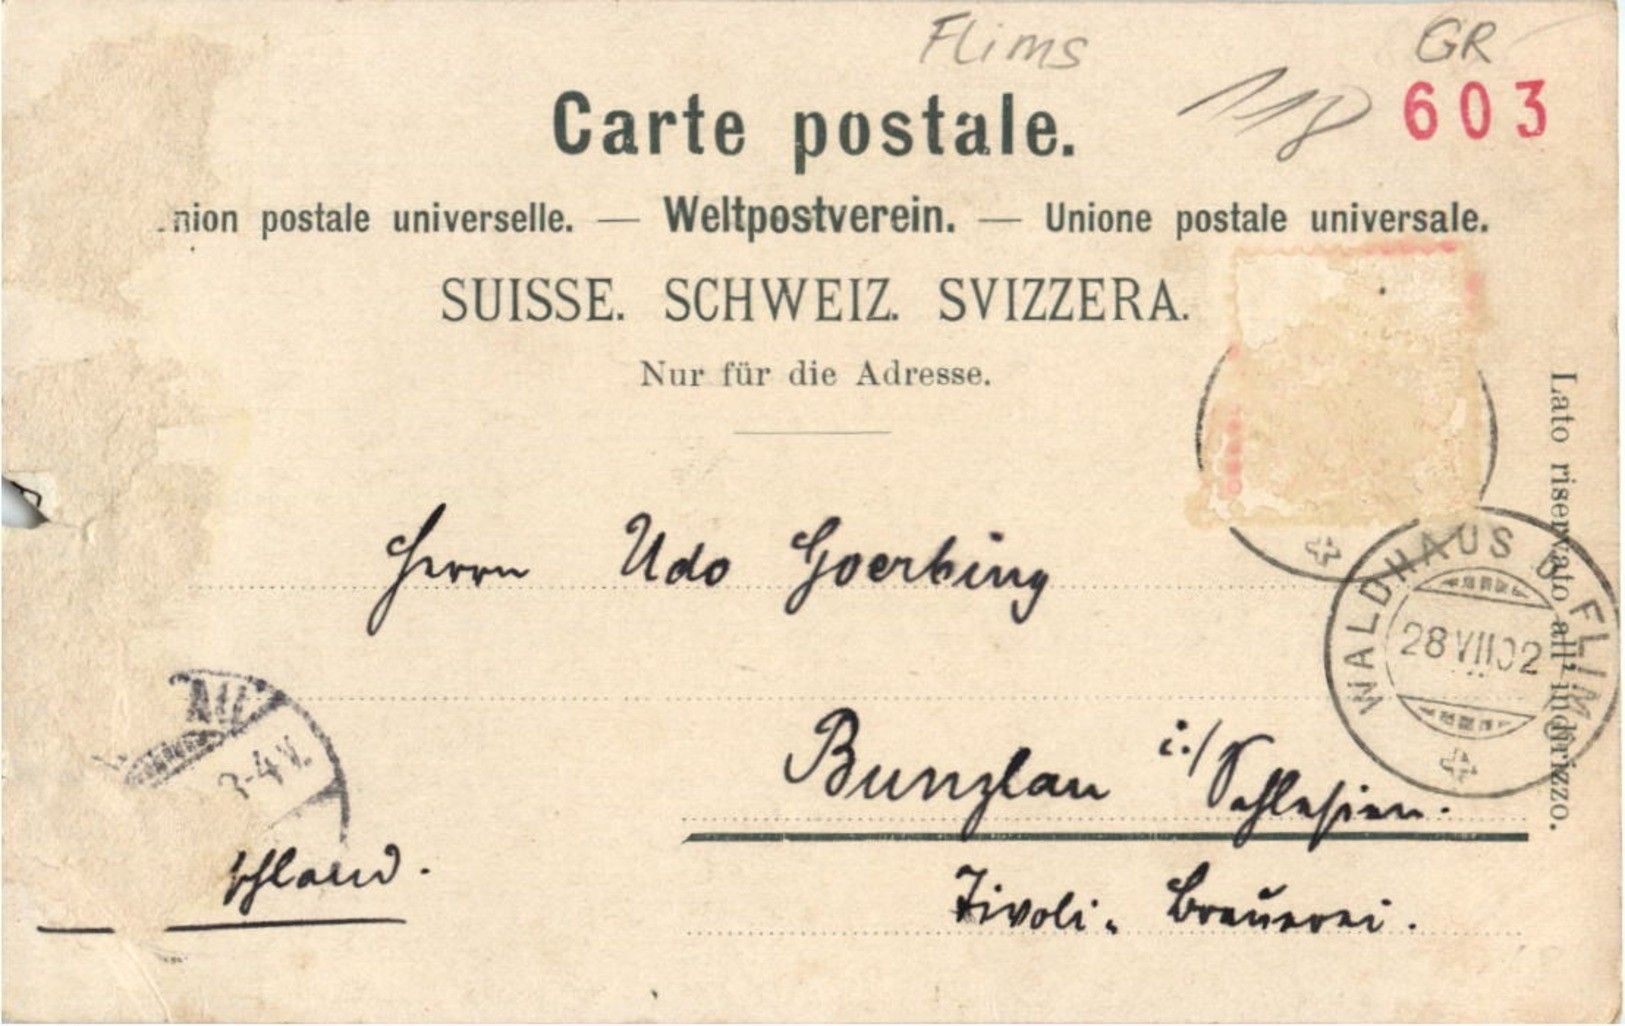 Flims GR
118 603
Carte postale.
nion postale universelle. — Weltpostverein. — Unione postale universale.
SUISSE. SCHWEIZ. SVIZZERA.
Nur für die Adresse.
Lato riservato all' indirizzo.
Herrn Udo Goerbing
WALDHAUS FLIMS
28 VII 02
Bunzlau i./Schlesien.
3-4 V.
schland.
Tivoli-Brauerei.